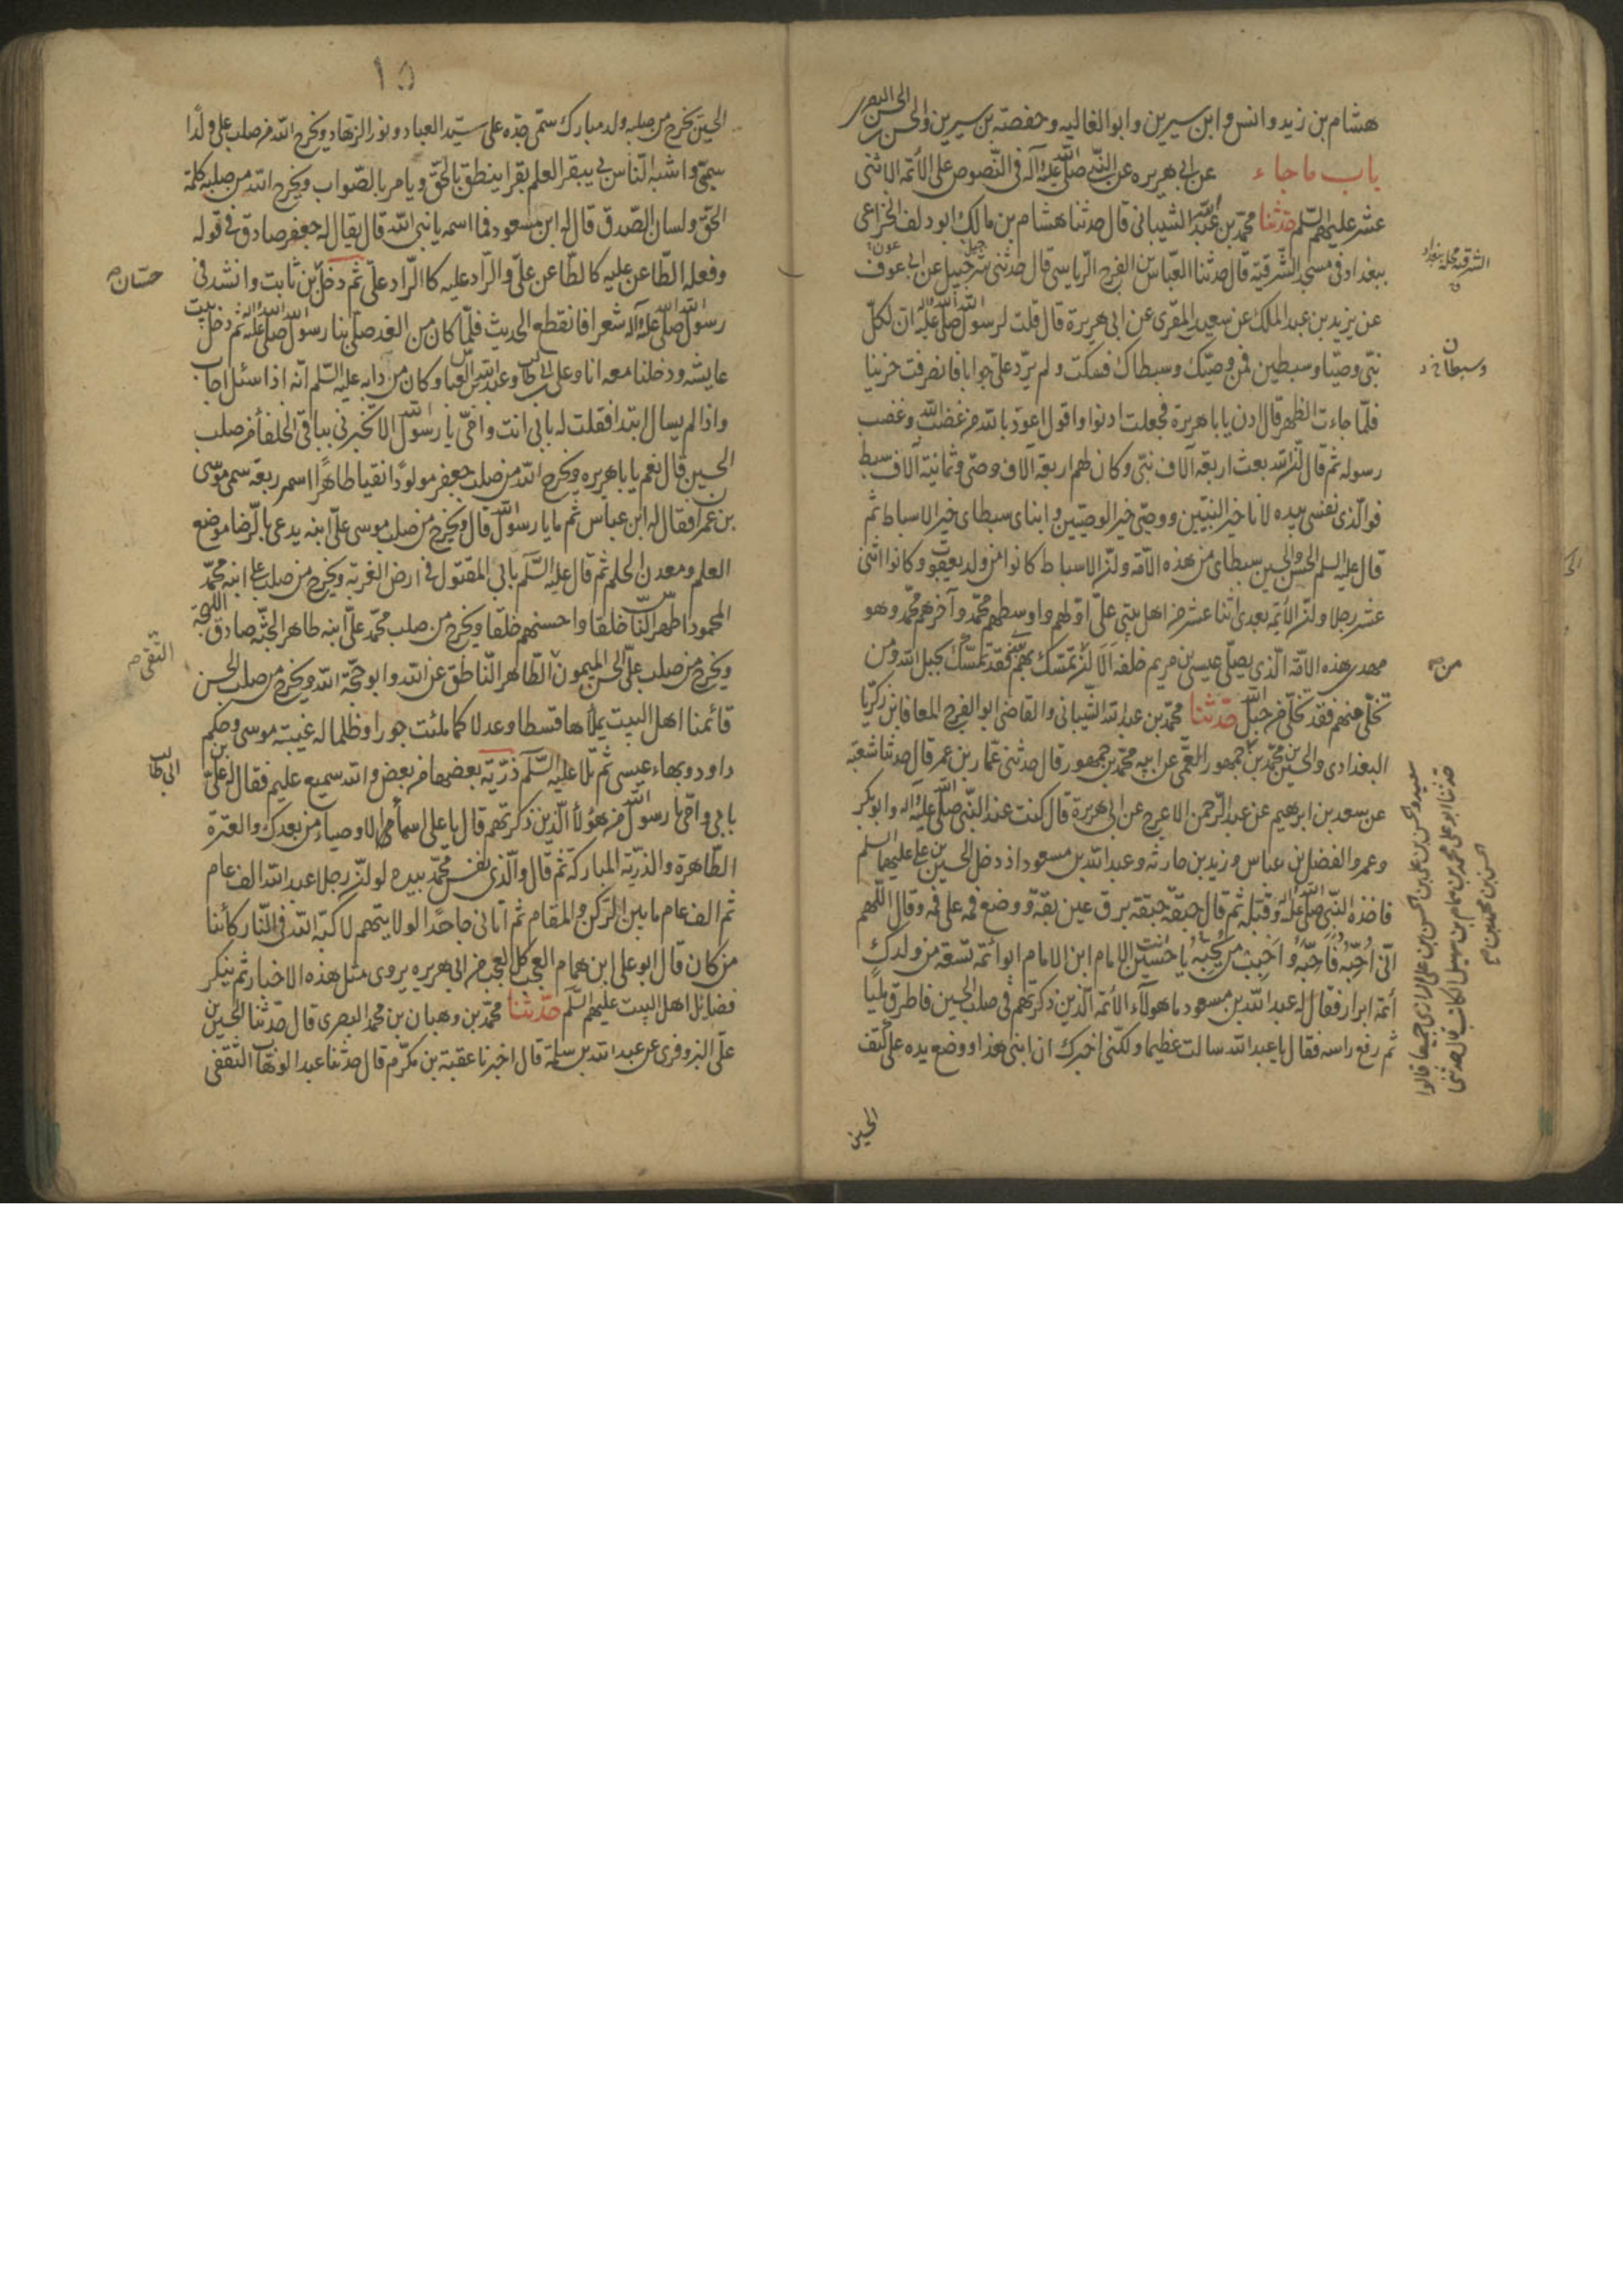 هشام بن زيد وانس وابن سيرين وابوالغاليه وحفصته بن سيرين والحسن البصرى
باب ماجاء عن ابى هريره عن النّبى صلّى اللّه عليه وآله فى النّصوص على الأئمّه الاثنى
عشر عليهم السّلم حدّثنا محمّد بن عبد اللّه الشيبانى قال حدثنا هشام بن مالك ابو دلف الخزاعى
ببغداد فى مسجد الشّرقية قال حدثنا العبّاس بن الفرج الرّياسى قال حدثنى شرحبيل عن ابى عوف
عن يزيد بن عبد الملك عن سعيد المقرى عن ابى هريرة قال قلت لرسول اللّه صلّى اللّه عليه واله ان لكلّ
نبّى وصيّا وسبطين فمن وصيّك وسبطاك فسكت ولم يردّ علىّ جوابا فانصرفت حزينا
فلمّا جاءت الظهر قال ادن يابا هريرة فجعلت ادنوا واقول اعوذ باللّه من غضب اللّه وغضب
رسوله ثم قال انّ اللّه بعث اربعة آلاف نبّى وكان لهم اربعة آلاف وصّى وثمانية آلاف سبط
فوالّذى نفسى بيده لانا خير النبيّين ووصّى خير الوصيّين وابناى سبطاى خير الاسباط ثم
قال عليه السلم الحسن والحسين سبطاى من هذه الامّة وانّ الاسباط كانوا من ولد يعقوب وكانوا اثنى
عشر رجلا وانّ الأئمّة بعدى اثنا عشر من اهل بيتى علىّ اوّلهم واوسطهم محمّد وآخرهم محمّد وهو
مهدى هذه الامّة الّذى يصلّى عيسى بن مريم خلفه الا انّ من تمسّك بهم فقد تمسّك بحبل اللّه ومن
تخلّى منهم فقد تخلّى من حبل اللّه حدّثنا محمّد بن عبد اللّه الشيبانى والقاضى ابو الفرج المعافا بن زكريّا
البغدادى والحسين بن محمّد بن جمهور العمّى عن ابيه محمّد بن جمهور قال حدثنى عمّار بن عمر قال حدثنا شعبة
عن سعد بن ابرهيم عن عبد الرّحمن الاعرج عن ابى هريرة قال كنت عند النّبى صلّى اللّه عليه واله وابو بكر
وعمر والفضل بن عباس وزيد بن حارثه وعبد اللّه بن مسعود اذ دخل الحسين بن على عليهما السلم
فاخذه النّبى صلّى اللّه عليه واله وقبّله ثم قال حبقّة حبقّة برق عين بقّة ووضع فمه على فمه وقال اللّهم
انّى اُحِبّهُ فَاَحِبّهُ واَحِبّ مَن يُحِبّهُ يا حسين انت الامام ابن الامام ابو ائمّة تسعة من ولدك
أئمّة ابرار فقال له عبد اللّه بن مسعود ما هولآء الأئمّه الّذين ذكرتهم فى صلب الحسين فاطرق مليّا
ثم رفع راسه فقال يا عبد اللّه سالت عظيما ولكنّى اخبرك ان ابنى هذا ووضع يده على كتف
الحسين
الشرقية محلة ببغداد
وسبطان
من
حدثنا ابو على محمد بن همام بن سهيل الكاتب قال حدثنى
١٥
الحسين يخرج من صلبه ولد مبارك سمّى جدّه على سيّد العباد ونور الزهّاد ويخرج اللّه من صلب على ولدًا
سمّيى واشبه النّاس بى يبقر العلم بقرا ينطق بالحقّ ويامر بالصّواب ويخرج اللّه من صلبه كلمة
الحق ولسان الصّدق قال له ابن مسعود فما اسمه يا نبى اللّه قال يقال له جعفر صادق فى قوله
وفعله الطّاعن عليه كالطّاعن علىّ والرّاد عليه كالرّاد علىّ ثم دخل بن ثابت وانشد فى
رسول اللّه صلّى اللّه عليه وآله شعرا فانقطع الحديث فلمّا كان من الغد صلّى بنا رسول اللّه صلّى اللّه عليه واله ثم دخل بيت
عايشه ودخلنا معه انا وعلى بن ابى طالب وعبد اللّه بن العباس وكان من دابه عليه السّلم انه اذا سئل اجاب
واذا لم يسال ابتدا فقلت له بابى انت وامّى يا رسول اللّه الا تخبرنى بباقى الخلفأ من صلب
الحسين قال نعم يابا هريره ويخرج اللّه من صلب جعفر مولودًا نقيا طاهرًا اسمر ربعة سمى موسى
بن عمران فقال له ابن عباس ثم من يا رسول اللّه قال ويخرج من صلب موسى علىّ ابنه يدعى بالرّضا موضع
العلم ومعدن الحلم ثم قال عليه السّلم بابى المقتول فى ارض الغربة ويخرج من صلب على ابنه محمّد
المحمود اطهر النّاس خلقا واحسنهم خلقا ويخرج من صلب محمّد علىّ ابنه طاهر الجثّه صادق اللّهجة
ويخرج من صلب علىّ الحسن الميمون الطّاهر النّاطق عن اللّه وابو حجّة اللّه ويخرج من صلب الحسن
قائمنا اهل البيت يملأها قسطا وعدلا كما ملئت جورا وظلما له غيبة موسى وحكم
داود وبهاء عيسى ثم تلا عليه السّلم ذرّيّة بعضها من بعض واللّه سميع عليم فقال له علىّ بن
بابى وامّى يا رسول اللّه من هؤلأ الّذين ذكرتهم قال يا على اسمأ الاوصياء من بعدك والعترة
الطّاهرة والذرّيّة المباركة ثم قال والّذى نفس محمّد بيده لو انّ رجلا عبد اللّه الف عام
ثم الف عام مابين الرّكن والمقام ثم اتانى جاحدًا لولايتهم لاكبّه اللّه فى النّار كائنا
من كان قال ابو على ابن همام العجب كل العجب من ابى هريره يروى مثل هذه الاخبار ثم ينكر
فضايل اهل البيت عليهم السّلم حدّثنا محمّد بن وهبان بن محمد البصرى قال حدّثنا الحسين بن
علّى البزوفرى عن عبد اللّه بن سلمة قال اخبرنا عقبة بن مكرّم قال حدثنا عبد الوهّاب الثّقفى
حسّان
النّقى
ابى طالب